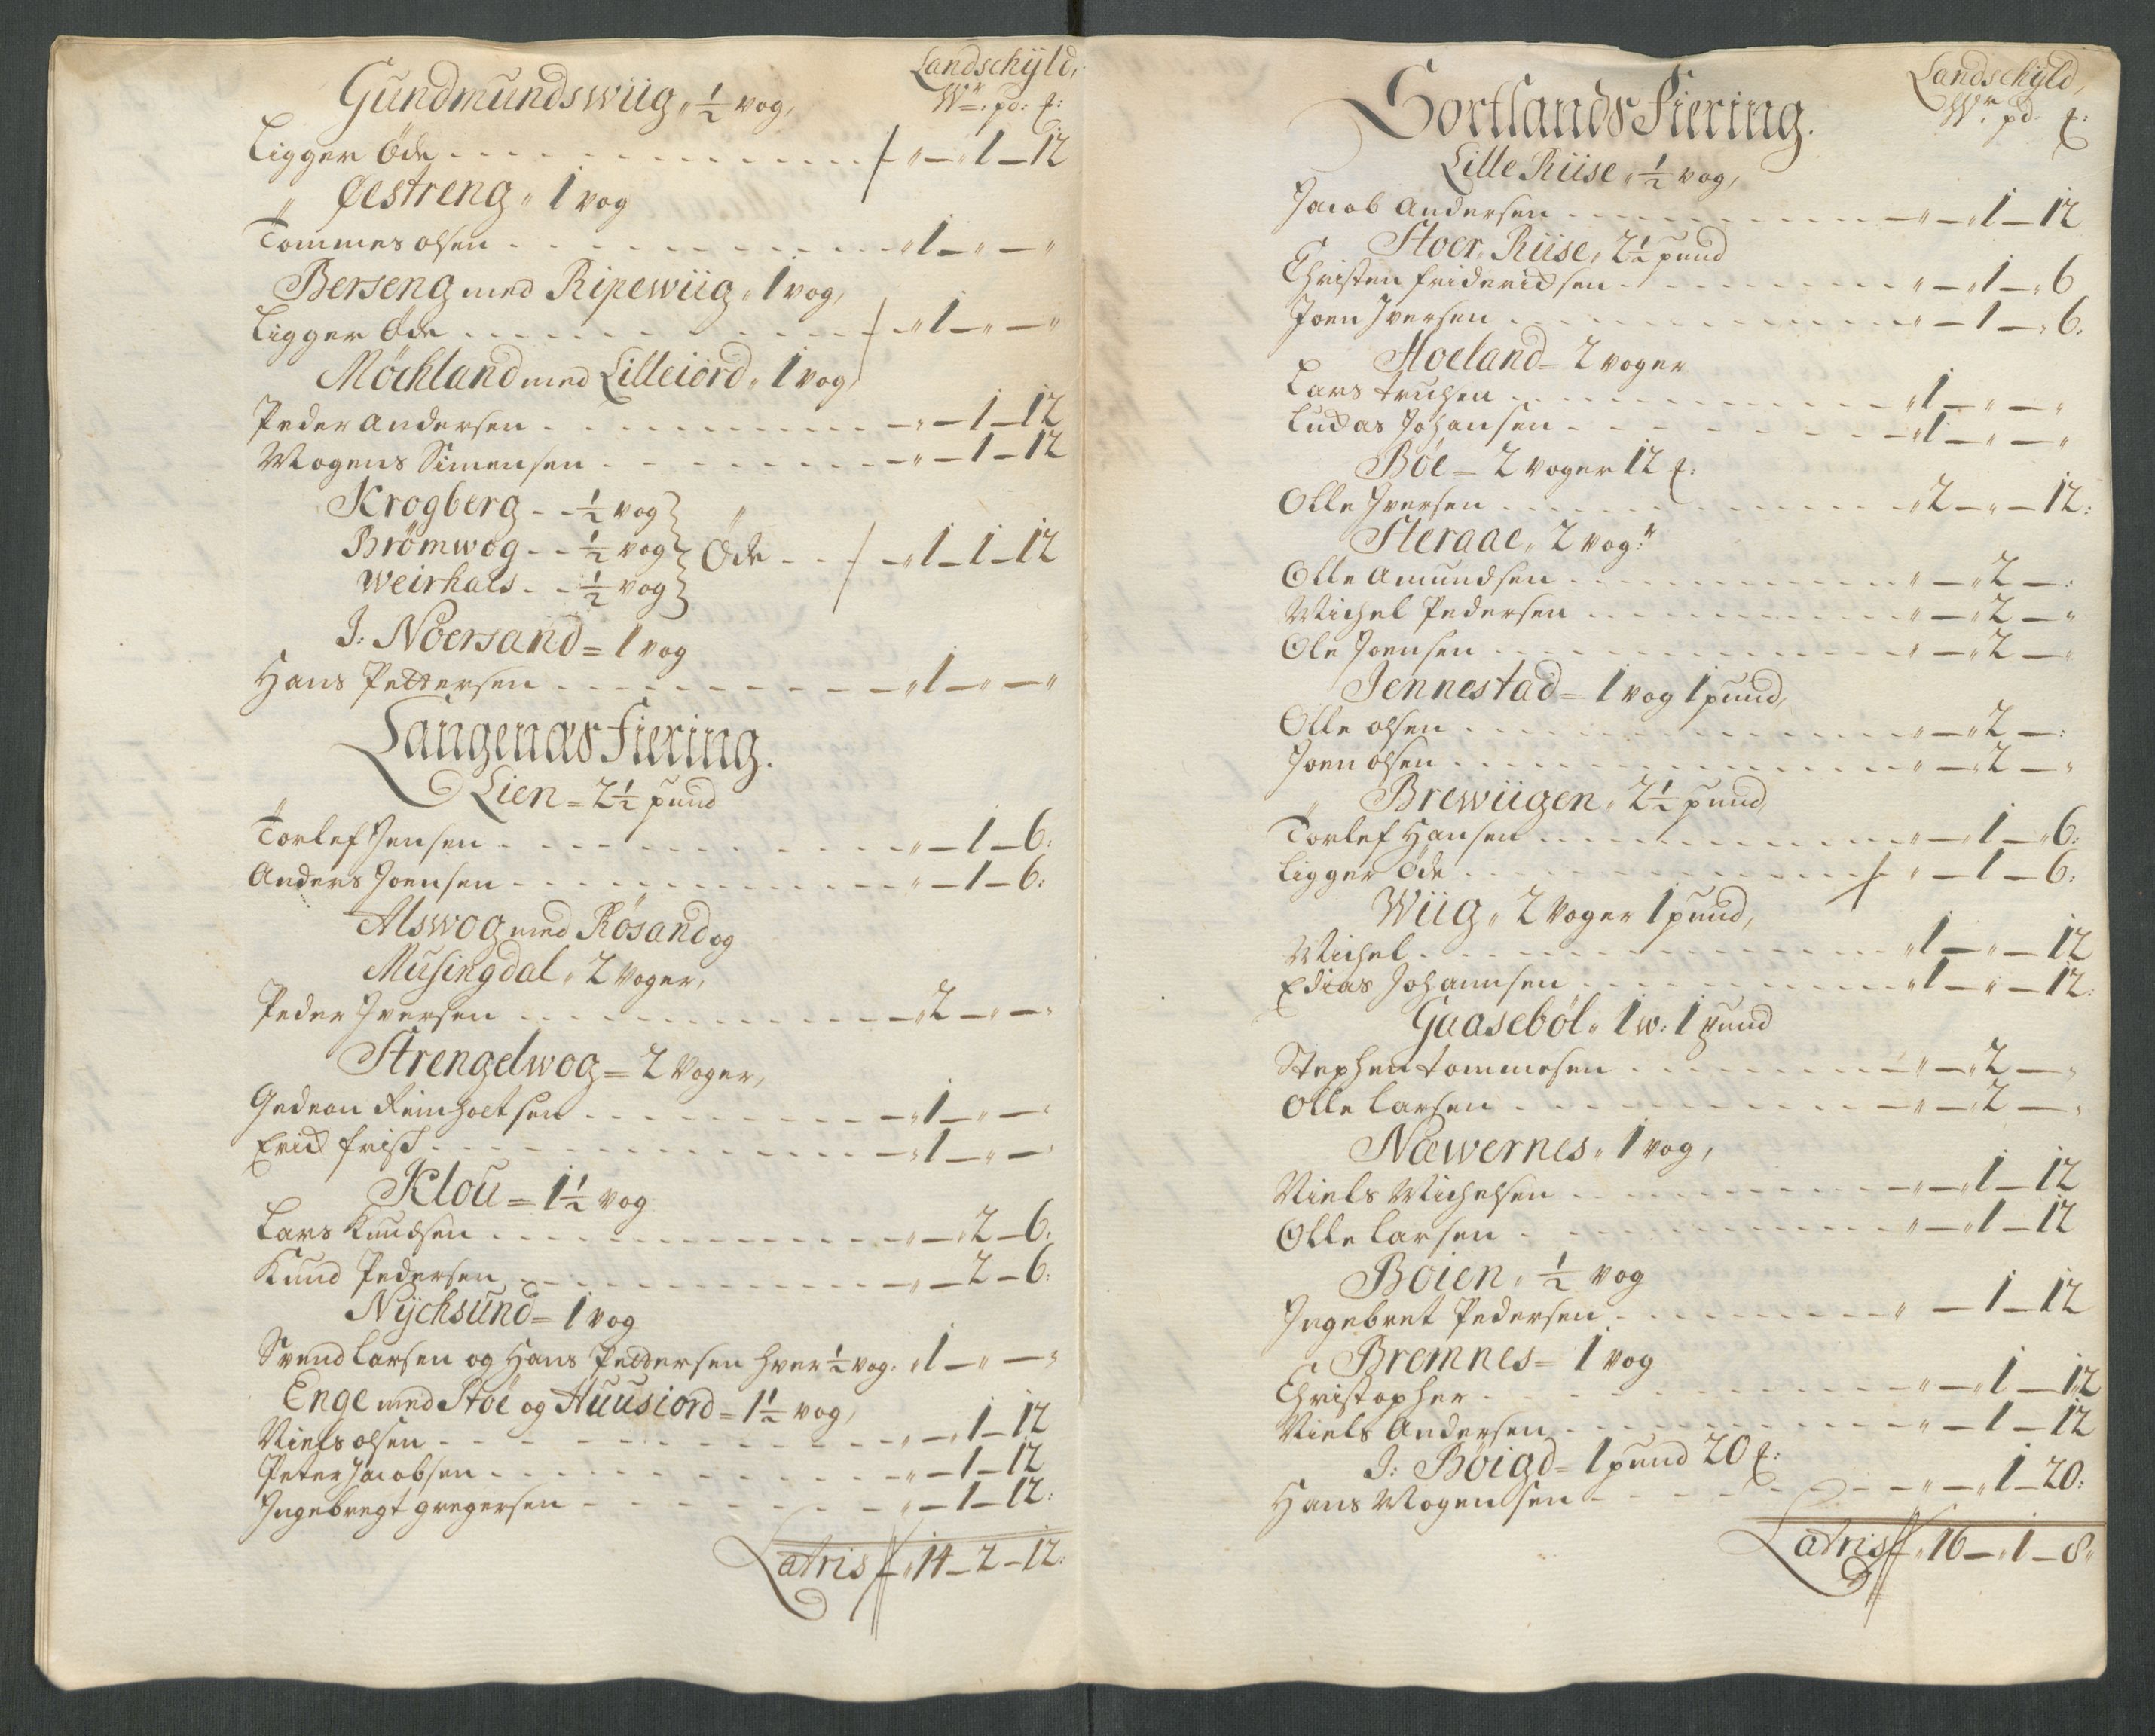 Landschÿld,
Gundmundswiig „ ½ vog,
Wr: pd: ℔:
Ligger Öde . . . „ — „ 1 — 12
Øestreng „ 1 vog
Tommes olsen . . . „ 1 — „ — „
Berseng med Ripewiig „ 1 vog,
Ligger Öde . . . „ 1 — „ — „
Möchland med Lilleiord „ 1 vog,
Peder Andersen . . . „ — 1 — 12
Mogens Simensen . . . „ — 1 — 12
Krogberg - - ½ vog
Brömwog - - ½ vog } Öde . . . „ 1 — 1 — 12
Weirhals - - ½ vog
J: Nöersand = 1 vog
Hans Pettersen . . . „ 1 — „ — „
Langenæs Fiering.
Lien = 2½ pund
Torlef Jensen . . . „ — 1 — 6:
Anders Joensen . . . „ — 1 — 6:
Alswog med Rösand og
Musingdal „ 2 Voger,
Peder Jversen . . . „ 2 — „ — „
Strengelwog = 2 Voger,
Gedeon Reinholtsen . . . „ 1 — „ — „
Erich frisch . . . „ 1 — „ — „
Klou = 1½ vog
Lars Knudsen . . . „ — 2 — 6:
Knud Pedersen . . . „ — 2 — 6:
Nÿchsund = 1 vog
Svend Larsen og Hans Pettersen hver ½ vog. „ 1 — „ — „
Enge med Stöe og Huusiord = 1½ vog,
Niels olsen . . . „ — 1 — 12
Peter Jacobsen . . . „ — 1 — 12
Ingebregt gregersen . . . „ — 1 — 12:
Latris „ 14 — 2 — 12:
Landschÿld,
Sortlands Fiering.
Wr: pd. ℔:
Lille Riise „ ½ vog,
Jacob Andersen . . . „ — „ 1 — 12
Stoer Riise, 2½ pund
Christen friderichsen . . . „ — „ 1 — „ 6
Joen Jversen . . . „ — 1 — „ 6.
Hoeland = 2 voger
Lars truhsen . . . „ 1 — „ — „
Ludas Johansen . . . „ 1 — „ — „
Böe — 2 voger 12 ℔:
Olle Jversen . . . „ 2 — „ — 12:
Steraae „ 2 vog:r
Olle Amundsen . . . „ — „ 2 — :
Michel Pedersen . . . „ — „ 2 — „
Ole Joensen . . . „ — „ 2 — „
Jennestad = 1 vog 1 pund,
Olle olsen . . . „ — „ 2 — :
Joen olsen . . . „ — „ 2 — „
Brewiigen „ 2½ pund,
Torlef Hansen . . . „ — „ 1 — „ 6:
Ligger Öde . . . „ — 1 — 6:
Wiig „ 2 Voger 1 pund,
Michel . . . „ 1 — „ — 12
Edias Johannsen . . . „ 1 — „ — 12:
Gaaseböl „ 1 w: 1 pund
Stephen tommesen . . . „ — „ 2 — „
Olle Larsen . . . „ — „ 2 — „
Næwernes „ 1 vog,
Niels Michelsen . . . „ — „ 1 — 12
Olle Larsen . . . „ — „ 1 — 12
Böien „ ½ vog
Ingebret Pedersen . . . „ — 1 — 12
Bremnes = 1 vog
Christopher . . . „ — „ 1 — 12
Niels Andersen . . . „ — 1 — 12
J: Böigd = 1 pund 20 ℔:
Hans Mogensen . . . „ — „ 1 — 20:
Latris „ 16 — „ 1 — 8 „